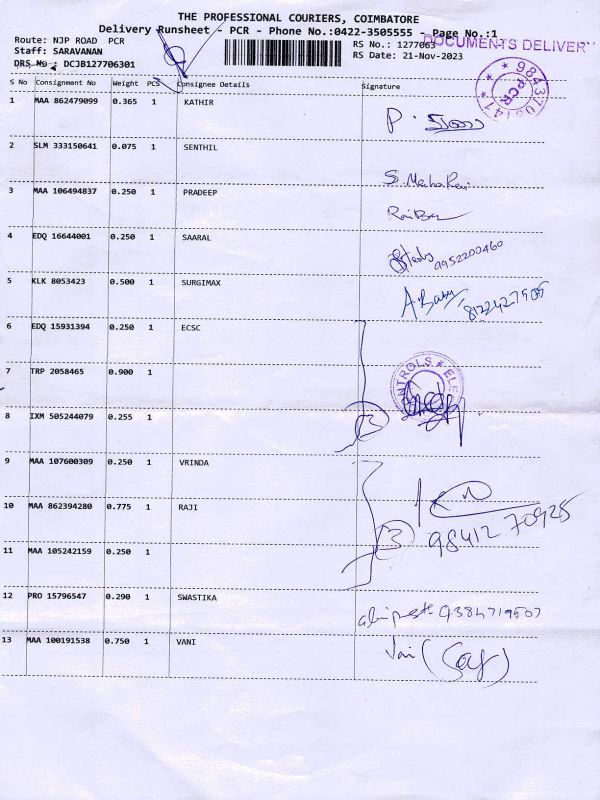 THE PROFESSIONAL COURIERS, COIMBATORE
Delivery Runsheet - PCR - Phone No.:0422-3505555 - Page No.:1
Route: NJP ROAD PCR
RS No.: 1277063
DOCUMENTS DELIVERY
Staff: SARAVANAN
RS Date: 21-Nov-2023
DRS No : DCJB127706301
PCR
S No Consignment No Weight PCS Consignee Details Signature
1 MAA 862479099 0.365 1 KATHIR
2 SLM 333150641 0.075 1 SENTHIL
3 MAA 106494837 0.250 1 PRADEEP
4 EDQ 16644001 0.250 1 SAARAL
9952200460
5 KLK 8053423 0.500 1 SURGIMAX
A. Babu
6 EDQ 15931394 0.250 1 ECSC
7 TRP 2058465 0.900 1
8 IXM 505244079 0.255 1
3
9 MAA 107600309 0.250 1 VRINDA
10 MAA 862394280 0.775 1 RAJI
3
98412 70925
11 MAA 105242159 0.250 1
12 PRO 15796547 0.290 1 SWASTIKA
9384719507
13 MAA 100191538 0.750 1 VANI